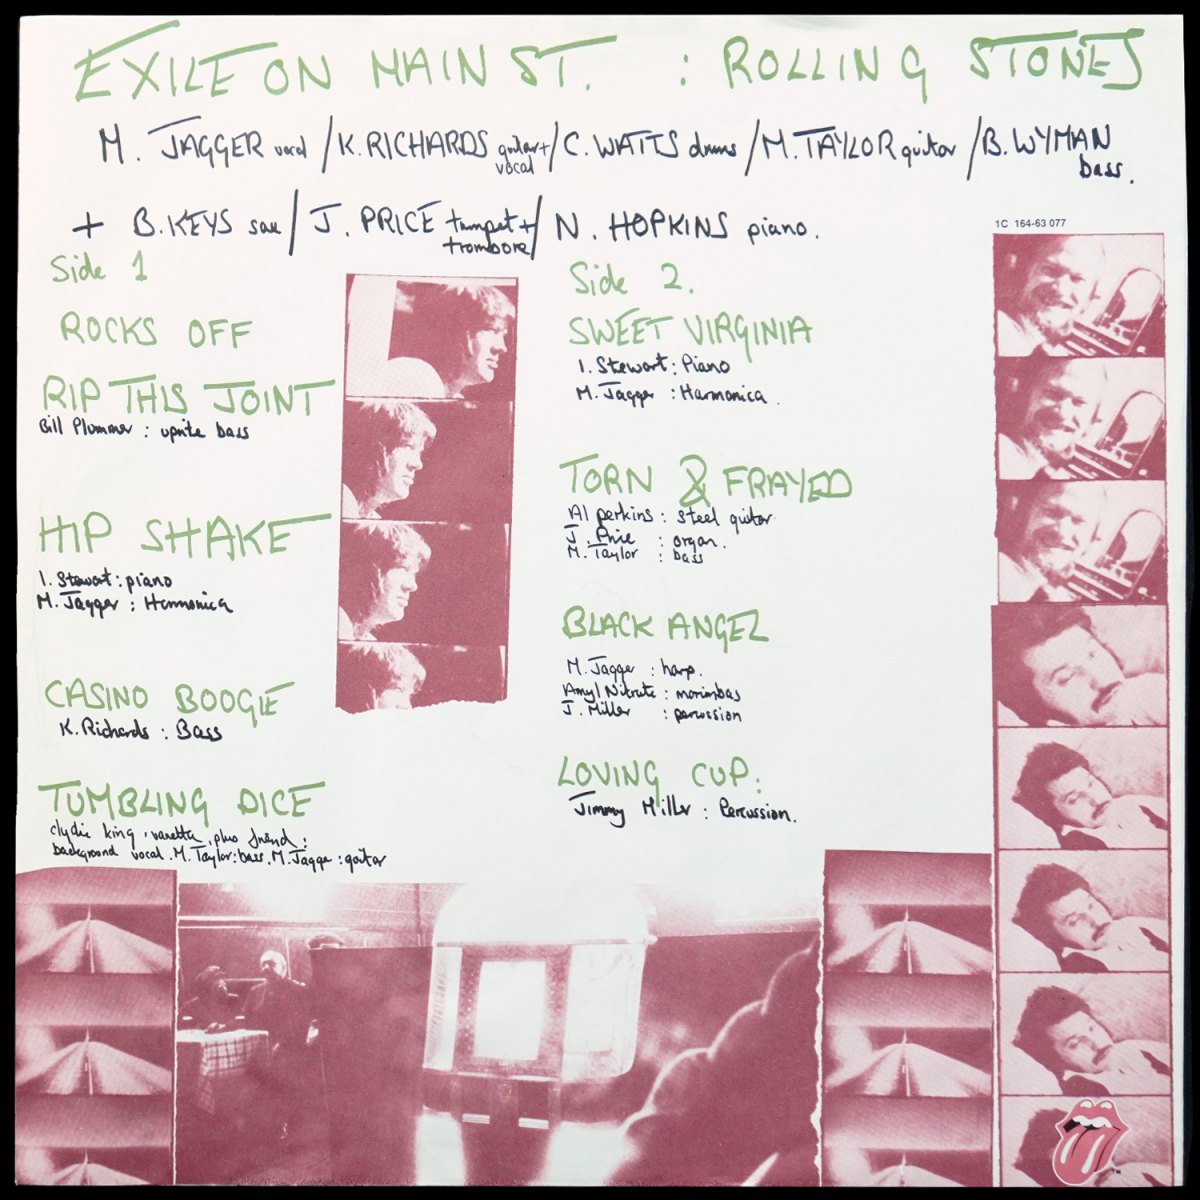 EXILE ON MAIN ST. : ROLLING STONES
M. JAGGER vocal / K. RICHARDS guitar + vocal / C. WATTS drums / M. TAYLOR guitar / B. WYMAN bass.
+ B. KEYS sax / J. PRICE trumpet + trombone / N. HOPKINS piano.
1C 164-63 077
Side 1
ROCKS OFF
RIP THIS JOINT
Bill Plummer : uprite bass
HIP SHAKE
I. Stewart : piano
M. Jagger : Harmonica
CASINO BOOGIE
K. Richards : Bass
TUMBLING DICE
clydie king, vanetta, plus friend :
background vocal. M. Taylor : bass. M. Jagger : guitar
Side 2.
SWEET VIRGINIA
I. Stewart : Piano
M. Jagger : Harmonica.
TORN & FRAYED
Al perkins : steel guitar
J. Price : organ.
M. Taylor : bass
BLACK ANGEL
M. Jagger : harp.
Amyl Nitrate : marimbas
J. Miller : percussion
LOVING CUP :
Jimmy Miller : Percussion.
TM